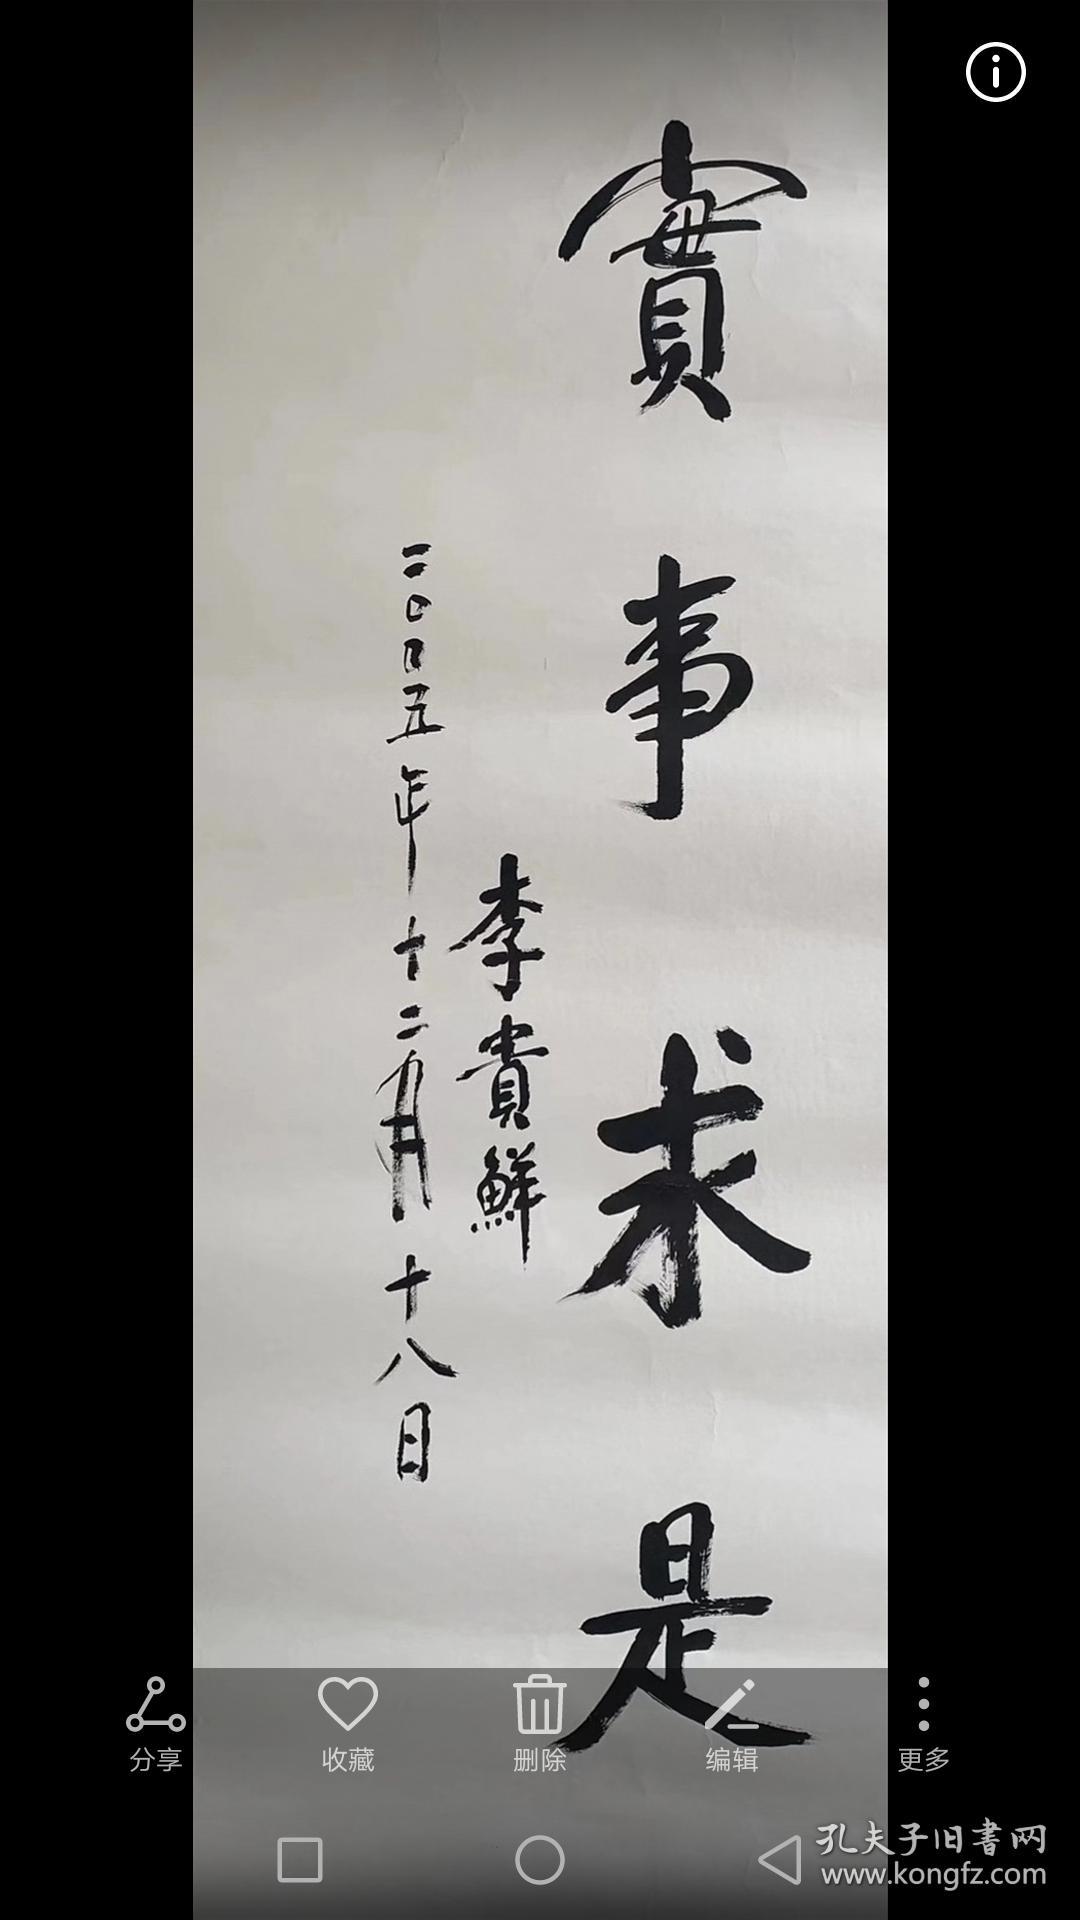 實事求是
李貴鮮
二〇〇五年十二月十八日
分享
收藏
删除
编辑
更多
孔夫子旧書网
www.kongfz.com